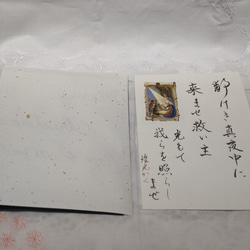 静けき真夜中に
来ませ救い主
光もて
我らを照らし
ませ